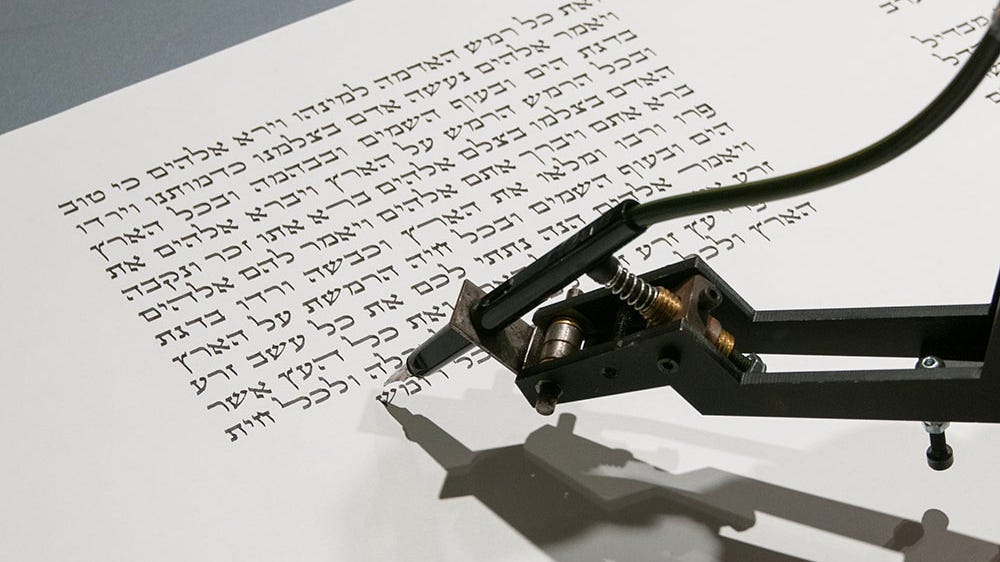 ואת כל רמש האדמה למינהו וירא אלהים כי טוב
ויאמר אלהים נעשה אדם בצלמנו כדמותנו וירדו
בדגת הים ובעוף השמים ובבהמה ובכל הארץ
ובכל הרמש הרמש על הארץ ויברא אלהים את
האדם בצלמו בצלם אלהים ברא אתו זכר ונקבה
ברא אתם ויברך אתם אלהים ויאמר להם אלהים
פרו ורבו ומלאו את הארץ וכבשה ורדו בדגת
הים ובעוף השמים ובכל חיה הרמשת על הארץ
ויאמר אלהים הנה נתתי לכם את כל עשב זרע
זרע ואת כל העץ אשר
עץ זרע ולכל חית
הארץ רומש
מבדיל